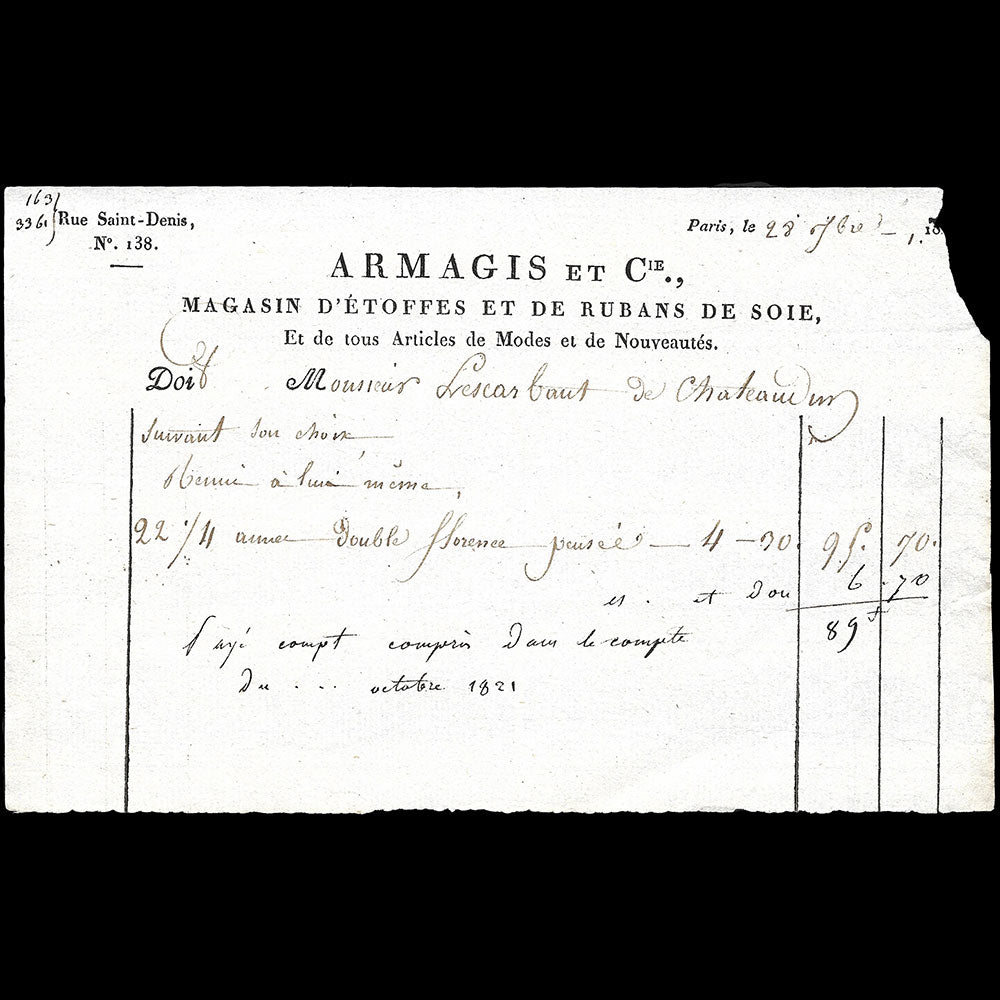 163
3361
Rue Saint-Denis,
N°. 138.
Paris, le 28 7bre 18
ARMAGIS ET CIE.,
MAGASIN D'ÉTOFFES ET DE RUBANS DE SOIE,
Et de tous Articles de Modes et de Nouveautés.
Doit Monsieur Lescarbaut de Chateaudun
suivant son choix
Remis à lui même,
22 1/4 aunes Double fflorence pensée — 4 — 30. 95. 70.
et Don 6. 70
89f
Payé compt compris Dans le compte
Du ... octobre 1821